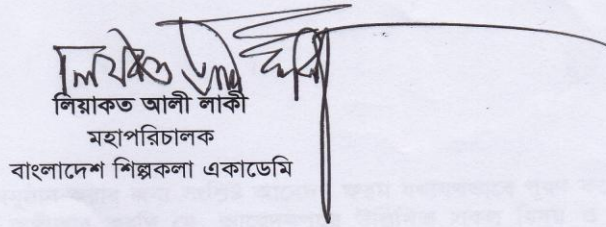 লিয়াকত আলী লাকী
লিয়াকত আলী লাকী
মহাপরিচালক
বাংলাদেশ শিল্পকলা একাডেমি